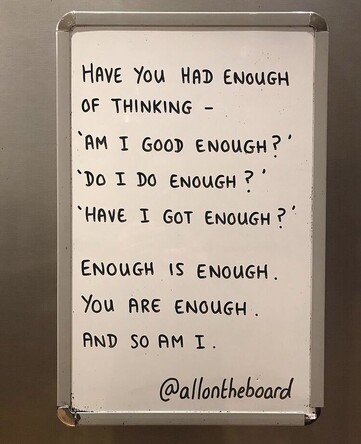 HAVE YOU HAD ENOUGH
OF THINKING -
'AM I GOOD ENOUGH?'
'DO I DO ENOUGH?'
'HAVE I GOT ENOUGH?'
ENOUGH IS ENOUGH.
YOU ARE ENOUGH.
AND SO AM I.
@allontheboard